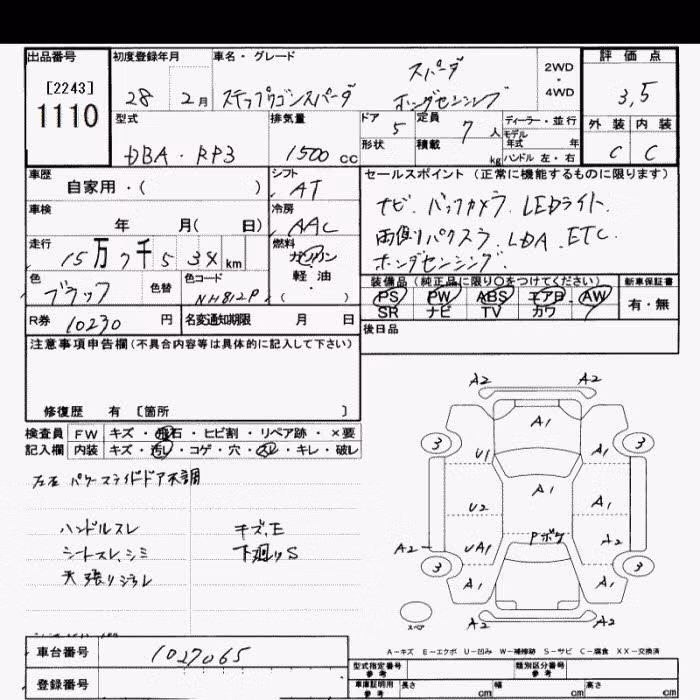 出品番号 初度登録年月 車名・グレード 2WD・4WD 評価点
[2243]
1110
28 2月 ステップワゴンスパーダ スパーダ ホンダセンシング 3,5
型式 排気量 ドア 5 定員 7人 ディーラー・並行 外装 内装
形状 積載 kg モデル年式 年 ハンドル 左・右
DBA・RP3 1500cc C C
車歴 シフト セールスポイント (正常に機能するものに限ります)
自家用・( ) AT
車検 冷房 ナビ. バックカメラ. LEDライト.
年 月( 日) AAC 両側パワスラ. LDA. ETC.
走行 燃料 ホンダセンシング.
15万7千5 34km ガソリン
軽・油
・( )
色 色替 色コード 装備品 (純正品に限り○をつけてください) 新車保証書
ブラック NH812P PS PW ABS エアB AW 有・無
SR ナビ TV カワ
R券 10230円 名変通知期限 月 日 後日品
注意事項申告欄(不具合内容等は具体的に記入して下さい)
修復歴 有 [箇所 ]
検査員 FW キズ・飛石・ヒビ割・リペア跡・×要
記入欄 内装 キズ・汚レ・コゲ・穴・スレ・キレ・破レ
左右パワースライドドア不調
ハンドルスレ キズ,E
シートスレ,シミ 下廻りS
天張り
A2 A2
A1
3 3
U1
A1 A1
U2
Pボケ
A2 UA1 A2
3 3
A1 A1
A2 A2
スペア
A-キズ E-エクボ U-凹み W-補修跡 S-サビ C-腐食 XX-交換済
車台番号 1027065 型式指定番号 参考 類別区分番号 参考
登録番号 車庫証明用 参考 長さ cm 幅 cm 高さ cm